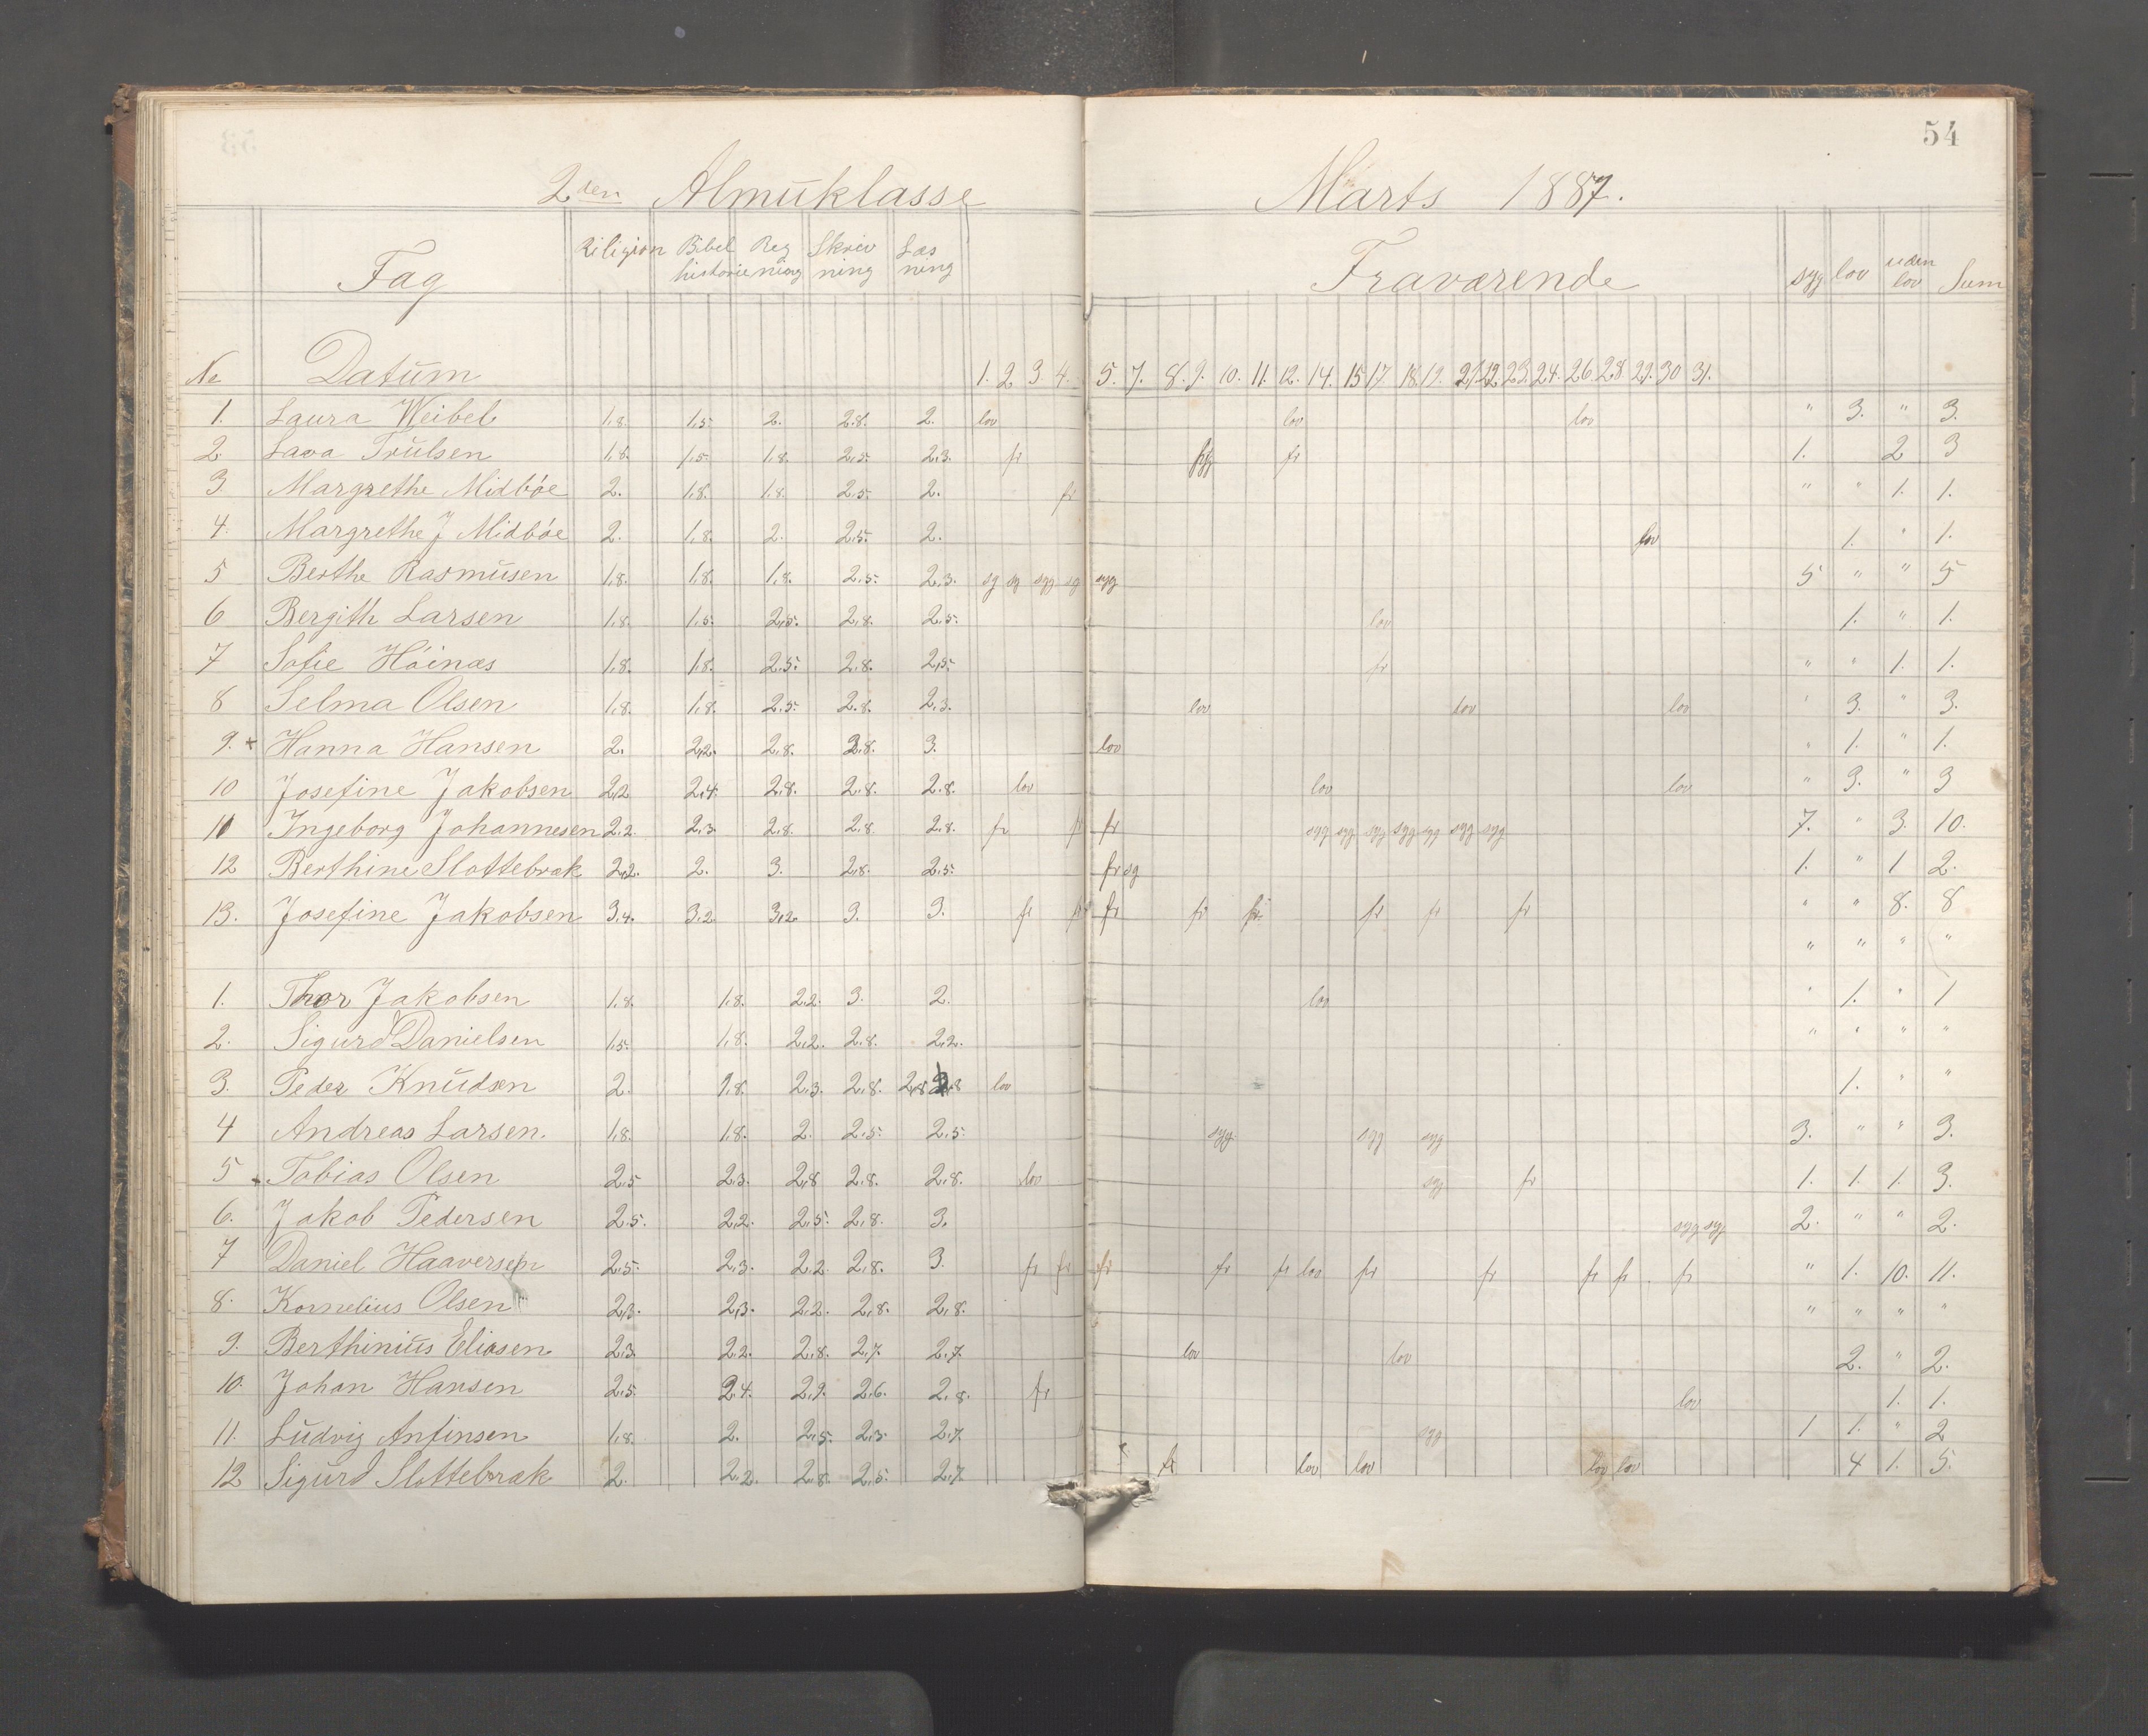 54
2den Almuklasse Marts 1887.
Fag Riligion Bibel historie Reg ning Skriv ning Læs ning Fraværende syg lov uden lov Sum
No Datum 1. 2 3. 4. 5. 7. 8. 9. 10. 11. 12. 14. 15 17 18. 19. 21. 22. 23. 24. 26 28 29. 30 31.
1. Laura Weibel 1,8. 1,5. 2. 2.8. 2. lov lov lov " 3. " 3.
2. Lava Trulsen 1,8. 1,5. 1,8. 2,5. 2,3. fr syg fr 1. 2 3
3. Margrethe Midbøe 2. 1,8. 1,8. 2,5. 2. fr " " 1. 1.
4. Margrethe J Midbøe 2. 1,8. 2. 2,5. 2. lov 1. " 1.
5 Berthe Rasmusen 1,8. 1,8. 1,8. 2,5. 2,3. sg sg syg sg syg 5 " " 5
6 Bergith Larsen 1,8. 1,5. 2,5. 2,8. 2,5. lov 1. " 1.
7 Sofie Høinæs 1,8. 1,8. 2,5. 2,8. 2,5. fr " " 1. 1.
8 Selma Olsen 1,8. 1,8. 2,5. 2.8. 2,3. lov lov lov " 3. " 3.
9. + Hanna Hansen 2. 2,2. 2,8. 2,8. 3. lov " 1. " 1.
10 Josefine Jakobsen 2,2 2,4. 2,8. 2,8. 2.8. lov lov lov " 3. " 3
11 Ingeborg Johannesen 2,2. 2,3. 2,8. 2,8. 2,8. fr fr fr syg syg syg syg syg syg syg 7. " 3. 10.
12 Berthine Slottebrak 2,2. 2. 3. 2,8. 2,5. fr sg 1. " 1 2.
13. Josefine Jakobsen 3,4. 3,2 3,2. 3. 3. fr fr fr fr fr fr fr fr " " 8. 8
" " " "
1. Thor Jakobsen 1,8. 1,8. 2,2. 3. 2. lov " 1. " 1
2. Sigurd Danielsen 1,5. 1,8. 2,2. 2,8. 2,2. " " " "
3. Peder Knudsen 2. 1,8. 2,3. 2,8. 2,8 lov 1. " "
4 Andreas Larsen. 1,8. 1,8. 2. 2,5. 2,5. syg. syg syg 3. " " 3.
5 + Tobias Olsen 2,5 2,3. 2,8 2,8. 2,8. lov syg fr 1. 1. 1. 3.
6. Jakob Pedersen 2,5. 2,2. 2,5. 2,8. 3. syg syg 2. " " 2.
7 Daniel Haaversen 2,5. 2,3. 2,2. 2,8. 3. fr fr fr fr fr lov fr fr fr fr fr " 1. 10. 11.
8. Kornelius Olsen 2,3. 2,3. 2,2. 2,8. 2,8. " " " "
9. Berthinius Eliasen 2,3. 2,2. 2,8. 2,7. 2,7. lov lov 2. " 2.
10. Johan Hansen 2,5. 2,4. 2,9. 2,6. 2,8. fr lov 1. 1.
11. Ludvig Anfinsen 1,8. 2. 2,5. 2,3. 2,7. syg 1 1. " 2
12 Sigurd Slottebrak 2. 2,2. 2,8. 2,5. 2,7. fr lov lov lov lov 4 1. 5.